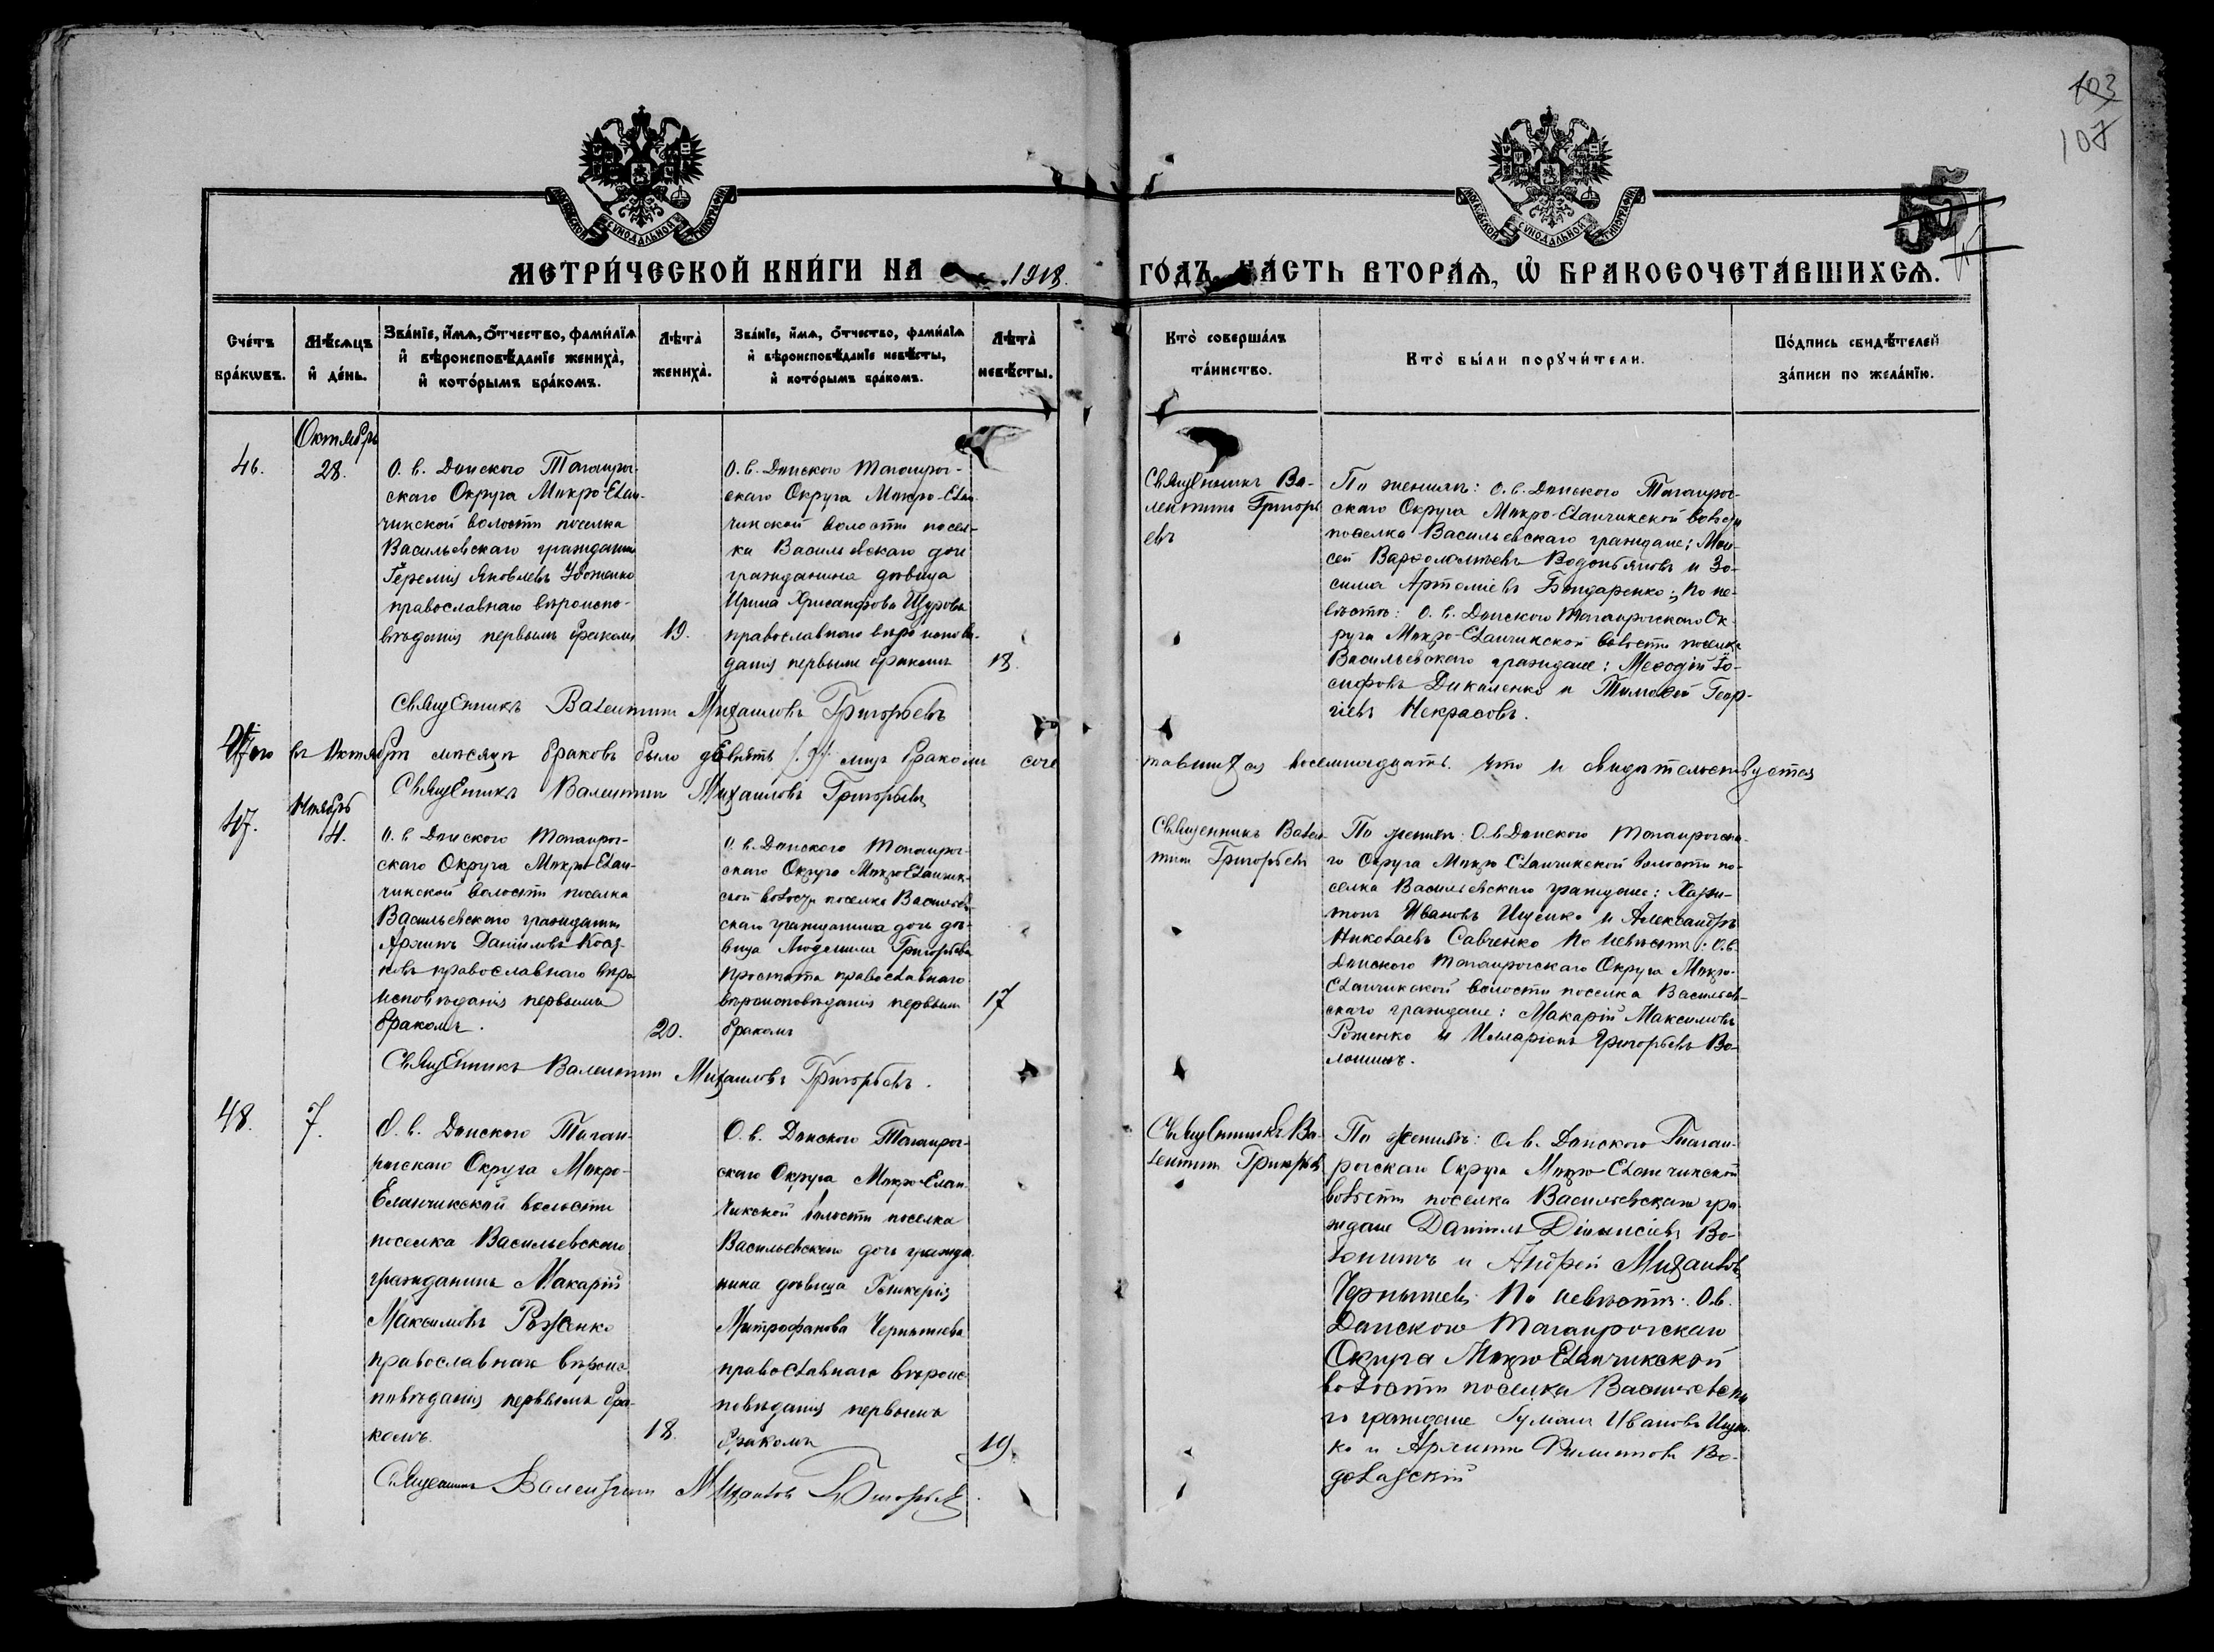 103
107
МОСКОВСКОЙ СУНОДАЛЬНОЙ ТИПОГРАФІИ
МОСКОВСКОЙ СУНОДАЛЬНОЙ ТИПОГРАФІИ
55
МЕТРИ́ЧЕСКОЙ КНИ́ГИ НА 1918 ГО́ДЪ, ЧА́СТЬ ВТОРА́Я, Ѡ҆ БРАКОСОЧЕТА́ВШИХСѦ.
Сче́тъ бра́кѡвъ.
Мѣ́сѧцъ и҆ де́нь.
Зва́нїе, и҆́мѧ, ѻ҆́тчество, фами́лїѧ и҆ вѣроисповѣ́данїе жениха̀, и҆ кото́рымъ бра́комъ.
Лѣ́та жениха̀.
Зва́нїе, и҆́мѧ, ѻ҆́тчество, фами́лїѧ и҆ вѣроисповѣ́данїе невѣ́сты, и҆ кото́рымъ бра́комъ.
Лѣ́та невѣ́сты.
Кто̀ соверша́лъ та́инство.
Кто̀ бы́ли порꙋчи́тели.
По́дпись свидѣ́телей за́писи по жела́нїю.
Октябрь
46.
28.
О. в. Донского Таганрог-
скаго Округа Мокро-Елан-
чикской волости поселка
Васильевскаго гражданин
Іеремія Яковлевъ
православнаго вѣроиспо-
вѣданія первымъ бракомъ
19.
О. в. Донского Таганрог-
скаго Округа Мокро-Елан-
чикской волости посел-
ка Васильевскаго дочь
гражданина дѣвица
Ирина Хрисанфова Щурова
православнаго вѣроисповѣ-
данія первымъ бракомъ
18.
Священникъ Ва-
лентинъ Григорь
евъ
По женихѣ: О. в. Донского Таганрог-
скаго Округа Мокро-Еланчикской волости
поселка Васильевскаго граждане: Мои-
сей Варѳоломѣевъ Водопьяновъ и Зо-
сима Артеміевъ Бондаренко; По не-
вѣстѣ: О. в. Донского Таганрогскаго Ок-
руга Мокро-Еланчикской волости поселка
Васильевскаго граждане: Меѳодій Іо-
сифовъ Дикаленко и Тимофей Геор-
гіевъ Некрасовъ.
Священникъ Валентинъ Михаиловъ Григорьевъ
Итого въ Октябрѣ мѣсяцѣ браковъ было девять (9) лицъ бракомъ соче
тавшихся восемнадцать. Что и свидѣтельствуется
Священникъ Валентинъ Михаиловъ Григорьевъ
Ноябрь
47.
4.
О. в. Донского Таганрог-
скаго Округа Мокро-Елан-
чикской волости поселка
Васильевскаго гражданин
Даніиловъ
православнаго вѣро
исповѣданія первымъ
бракомъ.
20.
О. в. Донского Таганрог-
скаго Округа Мокро-Еланчик-
ской волости поселка Васильев-
скаго гражданина дочь дѣ-
вица Людмила Григорьева
Простота православнаго
вѣроисповѣданія первымъ
бракомъ
17
Священникъ Вален-
тинъ Григорьевъ
По женихѣ: О. в. Донского Таганрогска-
го Округа Мокро Еланчикской волости по-
селка Васильевскаго граждане: Хари-
тонъ Ивановъ Ищенко и Александръ
Николаевъ Савченко По невѣстѣ: О. в.
Донского Таганрогскаго Округа Мокро-
Еланчикской волости поселка Васильев-
скаго граждане: Макарій Максимовъ
Роженко и Илларіонъ Григорьевъ Во-
лошинъ.
Священникъ Валентинъ Михаиловъ Григорьевъ.
48.
7.
О. в. Донского Таган-
рогскаго Округа Мокро-
Еланчикской волости
поселка Васильевскаго
гражданинъ Макарій
Максимовъ Роженко
православнаго вѣроис
повѣданія первымъ бра-
комъ.
18.
О. в. Донского Таганрог-
скаго Округа Мокро-Елан-
чикской волости поселка
Васильевскаго дочь гражда
нина дѣвица Гликерія
Митрофанова Чернышева
православнаго вѣроис
повѣданія первымъ
бракомъ
19.
Священникъ Ва-
лентинъ Григорьевъ
По женихѣ: О. в. Донского Таган-
рогскаго Округа Мокро-Еланчикской
волости поселка Васильевскаго гра
ждане Даніилъ Діонисіевъ Во-
лошинъ и Андрей Михаиловъ
Чернышевъ. По невѣстѣ: О. в.
Донского Таганрогскаго
Округа Мокро Еланчикской
волости поселка Васильевска
го граждане Ивановъ Ищен
ко и Филипповъ Во-
долазскій
Священникъ Валентинъ Михаиловъ Григорьевъ.